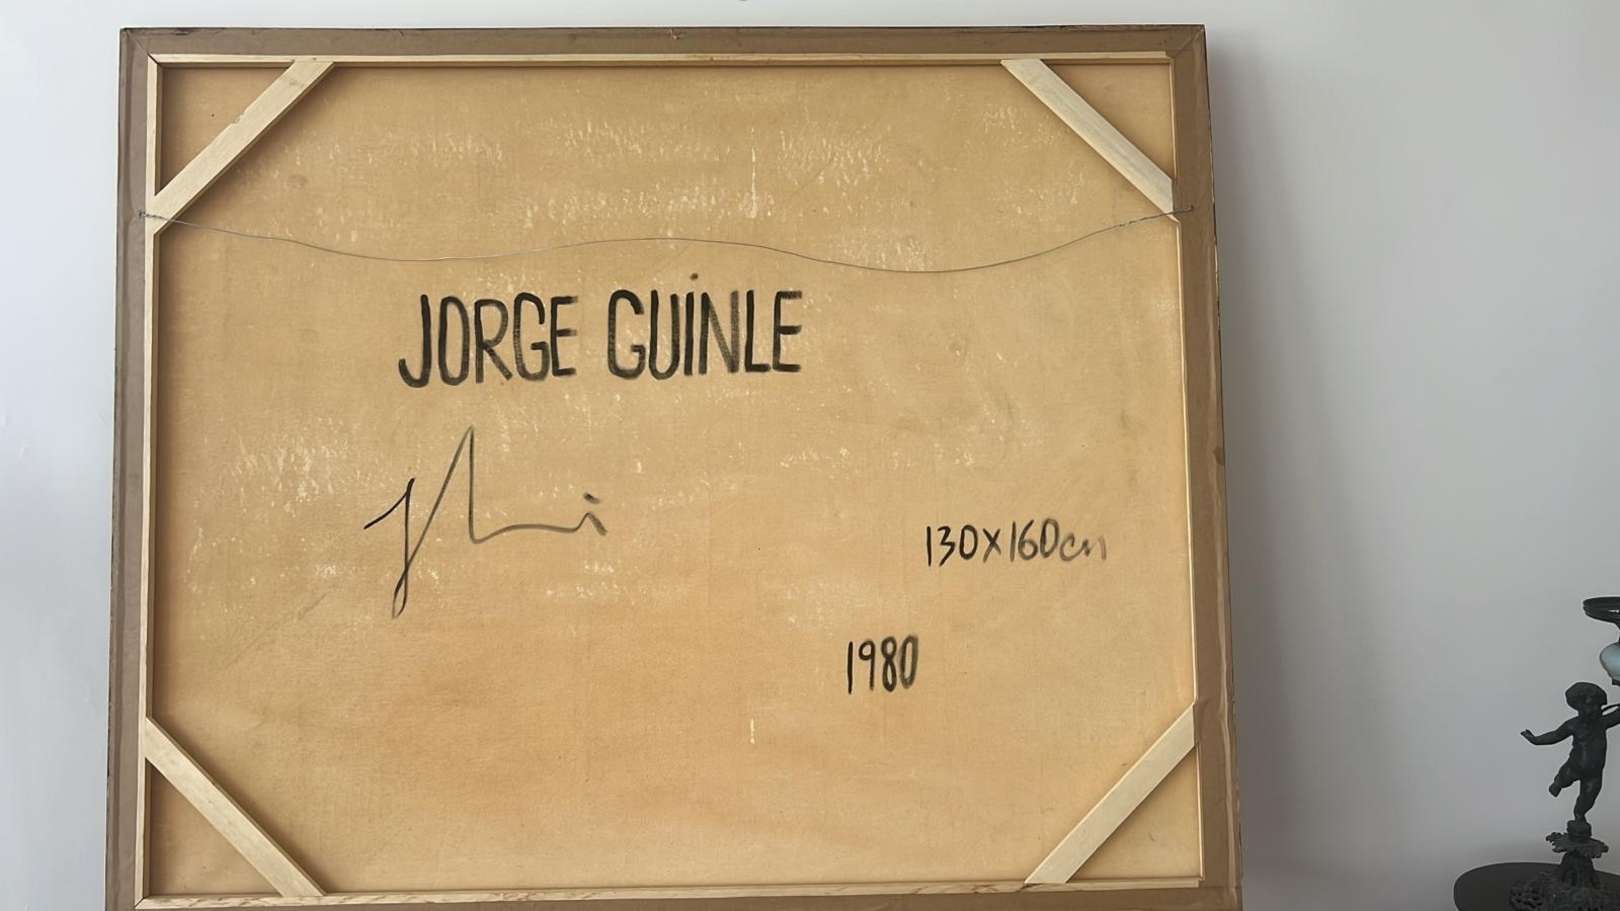 JORGE GUINLE
130X160cm
1980